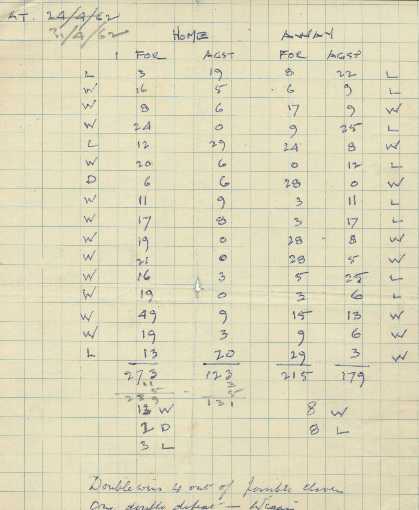 AT. 24/4/62
31/4/62
HOME AWAY
FOR AGST FOR AGST
L 3 19 8 22 L
W 16 5 6 9 L
W 8 6 17 9 W
W 24 0 9 25 L
L 12 29 24 8 W
W 20 6 0 12 L
D 6 6 28 0 W
W 11 9 3 11 L
W 17 8 3 17 L
W 19 0 28 8 W
W 21 0 28 5 W
W 16 3 5 25 L
W 19 0 3 6 L
W 49 9 15 13 W
W 19 3 9 6 W
L 13 20 29 3 W
273 123 215 179
W 8 W
D 8 L
3 L
Double wins 4 out of possible eleven
One double defeat —